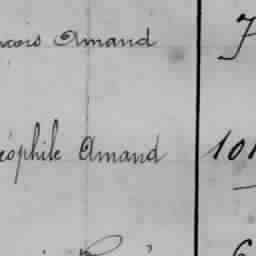 ncois Amand 7
éophile Amand 101